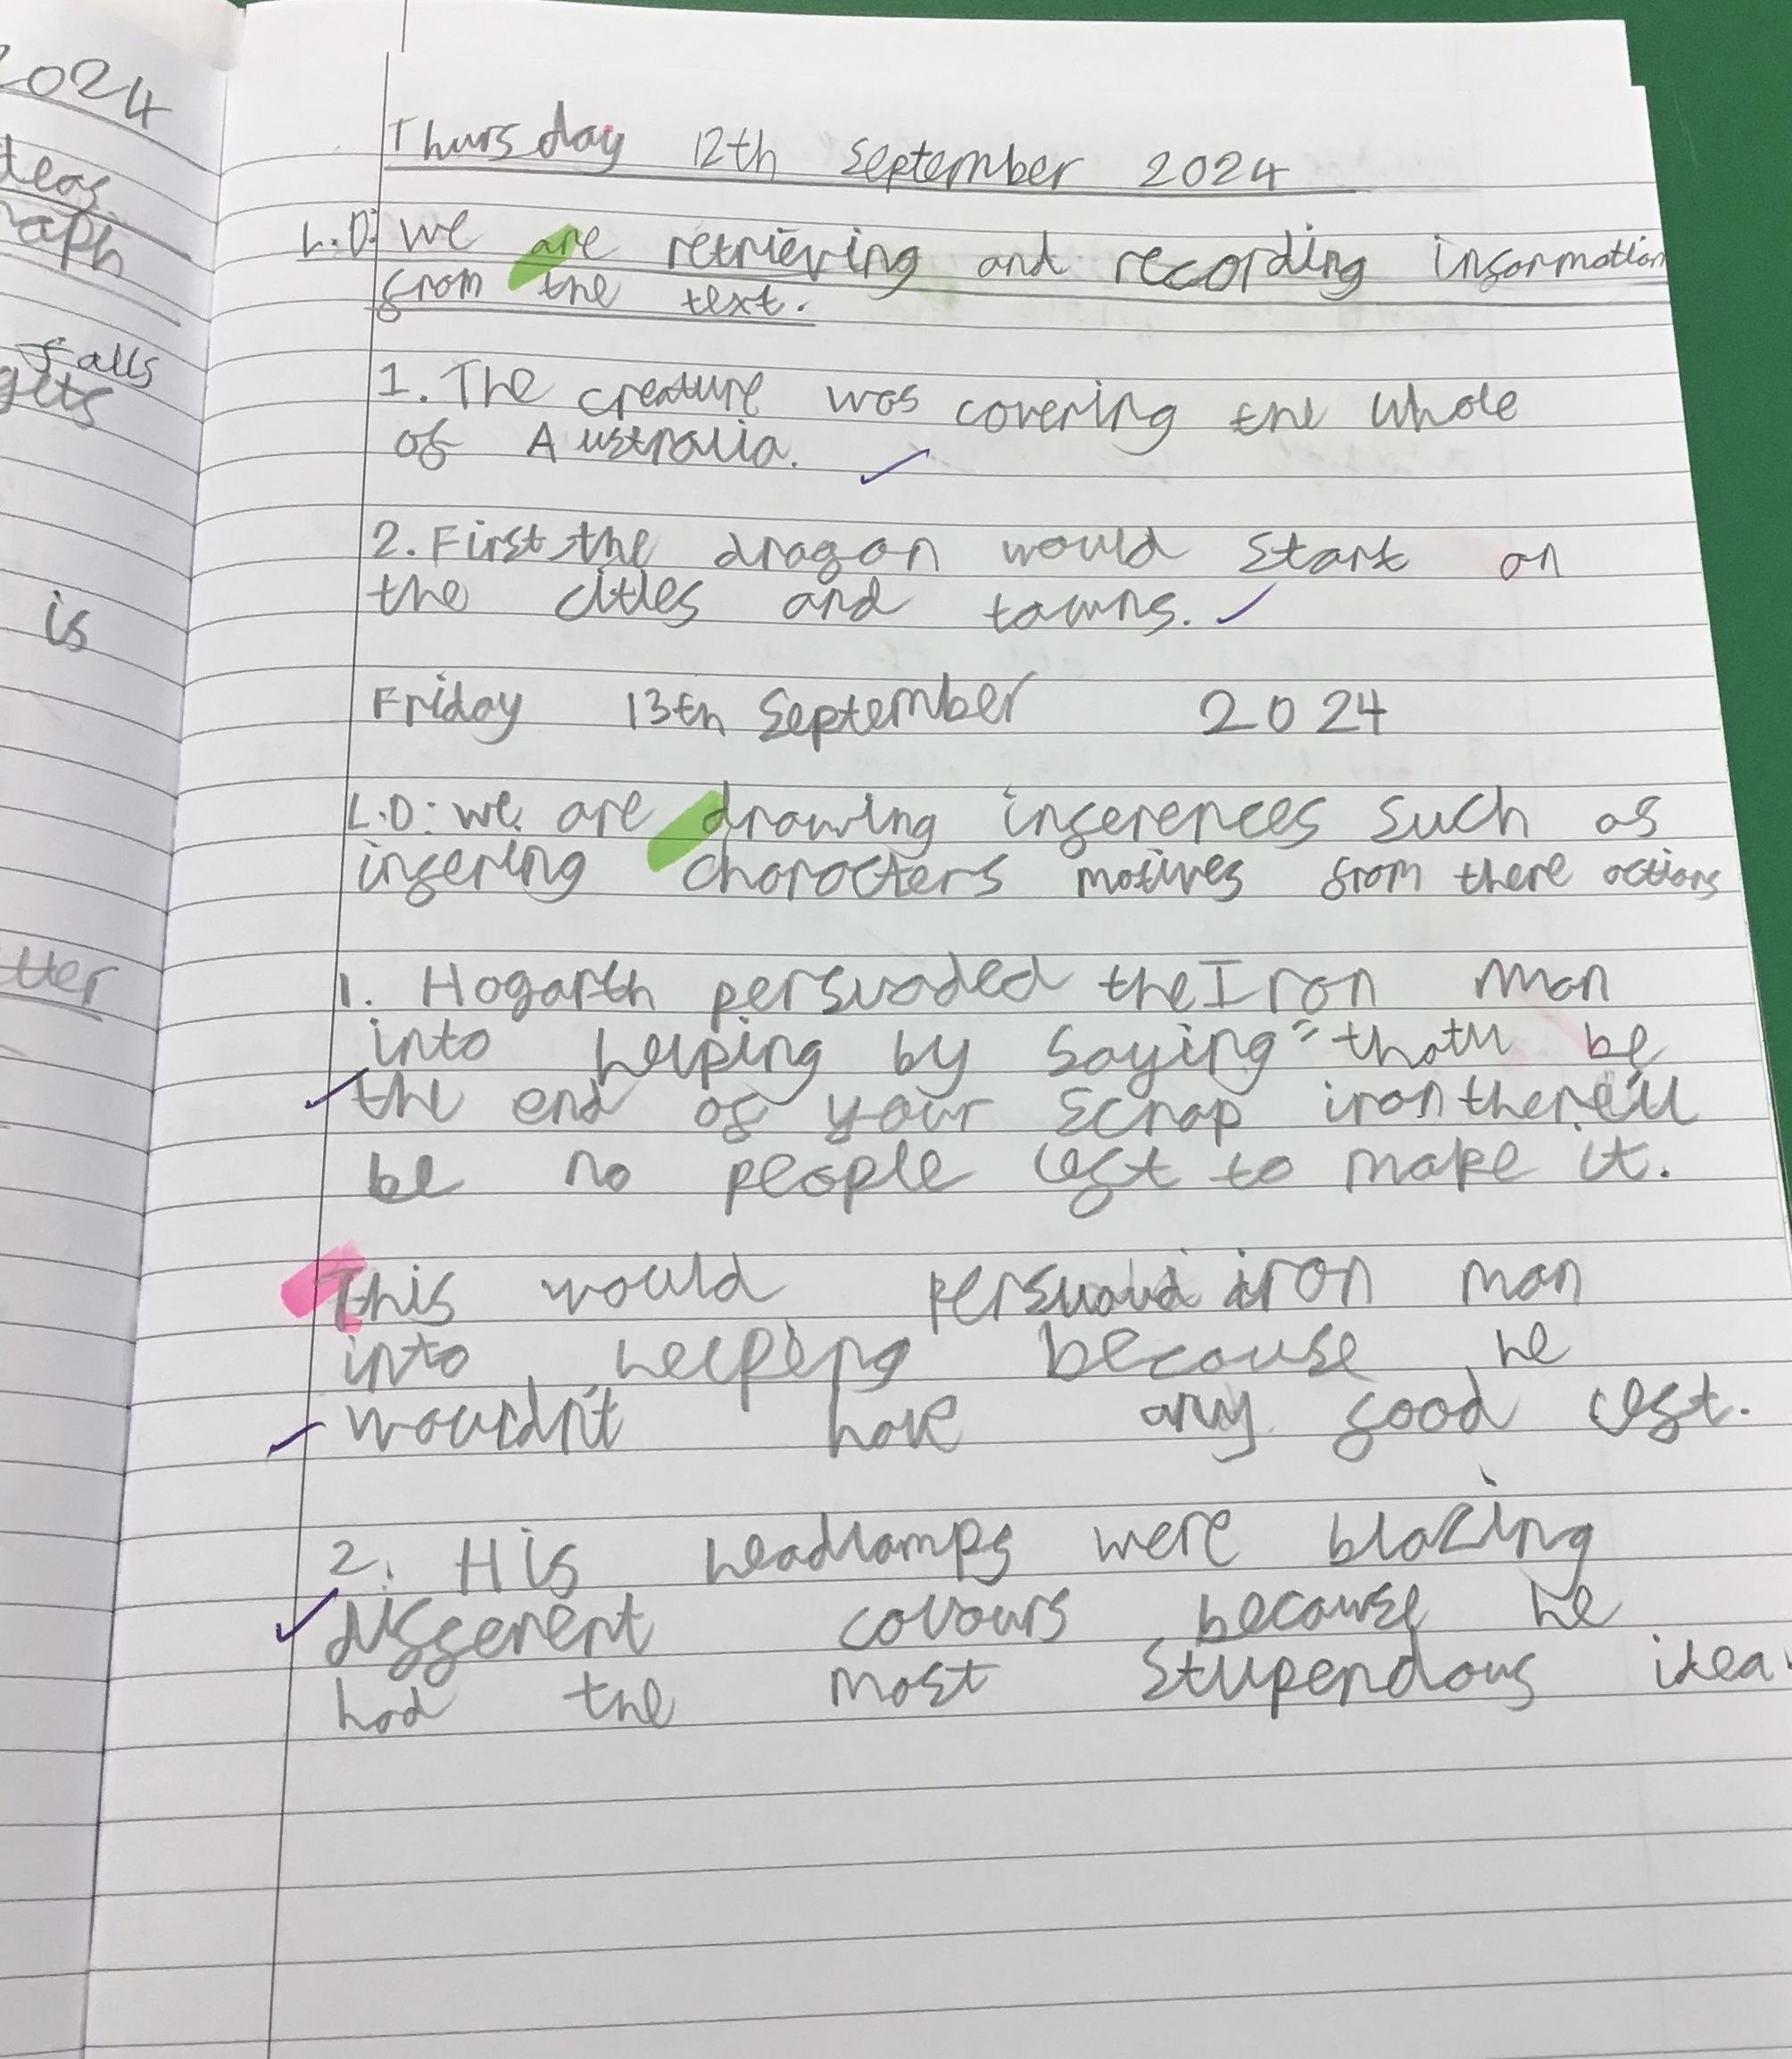 2024
deas
raph
Falls
gets
is
tter
Thursday 12th September 2024
L.O: we are retrieving and recording information
from the text.
1. The creature was covering the whole
of Australia.
2. First the dragon would start on
the cities and towns.
Friday 13th September 2024
L.O: we are drawing inferences such as
infering characters motives from there actions
1. Hogarth persuaded the Iron man
into helping by saying "thatll be
the end of your scrap iron there'll
be no people left to make it.
This would iron man
into helping because he
wouldn't have any food left.
2. His headlamps were blazing
different colours because he
had the most stupendous idea.